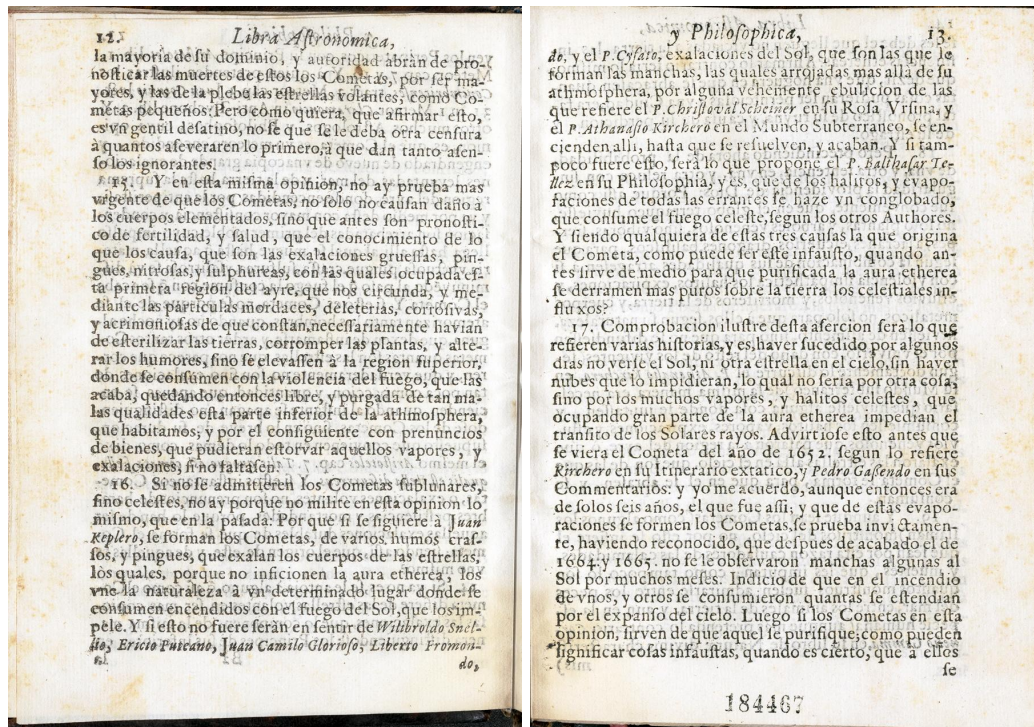 12. Libra Aſtronomica,
la mayoria de ſu dominio, y autoridad abràn de pro-
noſticar las muertes de eſtos los Cometas, por ſer ma-
yores, y las de la plebe las eſtrellas volantes, como Co-
metas pequeños: Pero como quiera, que afirmar eſto,
es vn gentil deſatino, no ſe que ſe le deba otra cenſura
à quantos aſeveraren lo primero, à que dan tanto aſen-
ſo los ignorantes.
15. Y en eſta miſma opinion, no ay prueba mas
vrgente de que los Cometas, no ſolo no cauſan daño à
los cuerpos elementados, ſino que antes ſon pronoſti-
co de fertilidad, y ſalud, que el conocimiento de lo
que los cauſa, que ſon las exalaciones grueſſas, pin-
gues, nitroſas, y ſulphureas, con las quales ocupada eſ-
ta primera region del ayre, que nos circunda, y me-
diante las particulas mordaces, deleterias, corroſivas,
y acrimonioſas de que conſtan, neceſſariamente havian
de eſterilizar las tierras, corromper las plantas, y alte-
rar los humores, ſino ſe elevaſſen à la region ſuperior,
donde ſe conſumen con la violencia del fuego, que las
acaba, quedando entonces libre, y purgada de tan ma-
las qualidades eſta parte inferior de la athmoſphera,
que habitamos; y por el conſiguiente con prenuncios
de bienes, que pudieran eſtorvar aquellos vapores, y
exalaciones, ſi no faltaſen.
16. Si no ſe admitieren los Cometas ſublunares,
ſino celeſtes, no ay porque no milite en eſta opinion lo
miſmo, que en la paſada: Por que ſi ſe ſiguiere à Juan
Keplero, ſe forman los Cometas, de varios humos craſ-
ſos, y pingues, que exalan los cuerpos de las eſtrellas,
los quales, porque no inficionen la aura etherea, los
vne la naturaleza à vn determinado lugar donde ſe
conſumen encendidos con el fuego del Sol, que los im-
pele. Y ſi eſto no fuere ſeràn en ſentir de Wilebroldo Snel-
lio, Ericio Puteano, Juan Camilo Glorioſo, Liberto Fromon-
do,
y Philoſophica, 13.
do, y el P. Cyſato, exalaciones del Sol, que ſon las que le
forman las manchas, las quales arrojadas mas alla de ſu
athmoſphera, por alguna vehemente ebulicion de las
que refiere el P. Chriſtoval Scheiner en ſu Roſa Vrſina, y
el P. Athanaſio Kirchero en el Mundo Subterraneo, ſe en-
cienden alli, haſta que ſe reſuelven, y acaban. Y ſi tam-
poco fuere eſto, ſerà lo que propone el P. Balthaſar Te-
llez en ſu Philoſophia, y es, que de los halitos, y evapo-
raciones de todas las errantes ſe haze vn conglobado,
que conſume el fuego celeſte, ſegun los otros Authores.
Y ſiendo qualquiera de eſtas tres cauſas la que origina
el Cometa, como puede ſer eſte infauſto, quando an-
tes ſirve de medio para que purificada la aura etherea
ſe derramen mas puros ſobre la tierra los celeſtiales in-
fluxos?
17. Comprobacion iluſtre deſta aſercion ſerà lo que
refieren varias hiſtorias, y es, haver ſucedido por algunos
dias no verſe el Sol, ni otra eſtrella en el cielo, ſin haver
nubes que lo impidieran, lo qual no ſeria por otra coſa,
ſino por los muchos vapores, y halitos celeſtes, que
ocupando gran parte de la aura etherea impedian el
tranſito de los Solares rayos. Advirtioſe eſto antes que
ſe viera el Cometa del año de 1652. ſegun lo refiere
Kirchero en ſu Itinerario extatico, y Pedro Gaſſendo en ſus
Commentarios: y yo me acuerdo, aunque entonces era
de ſolos ſeis años, el que fue aſſi; y que de eſtas evapo-
raciones ſe formen los Cometas, ſe prueba invictamen-
te, haviendo reconocido, que deſpues de acabado el de
1664. y 1665. no ſe le obſervaron manchas algunas al
Sol por muchos meſes. Indicio de que en el incendio
de vnos, y otros ſe conſumieron quantas ſe eſtendian
por el expanſo del cielo. Luego ſi los Cometas en eſta
opinion, ſirven de que aquel ſe purifique, como pueden
ſignificar coſas infauſtas, quando es cierto, que à ellos
ſe
184467